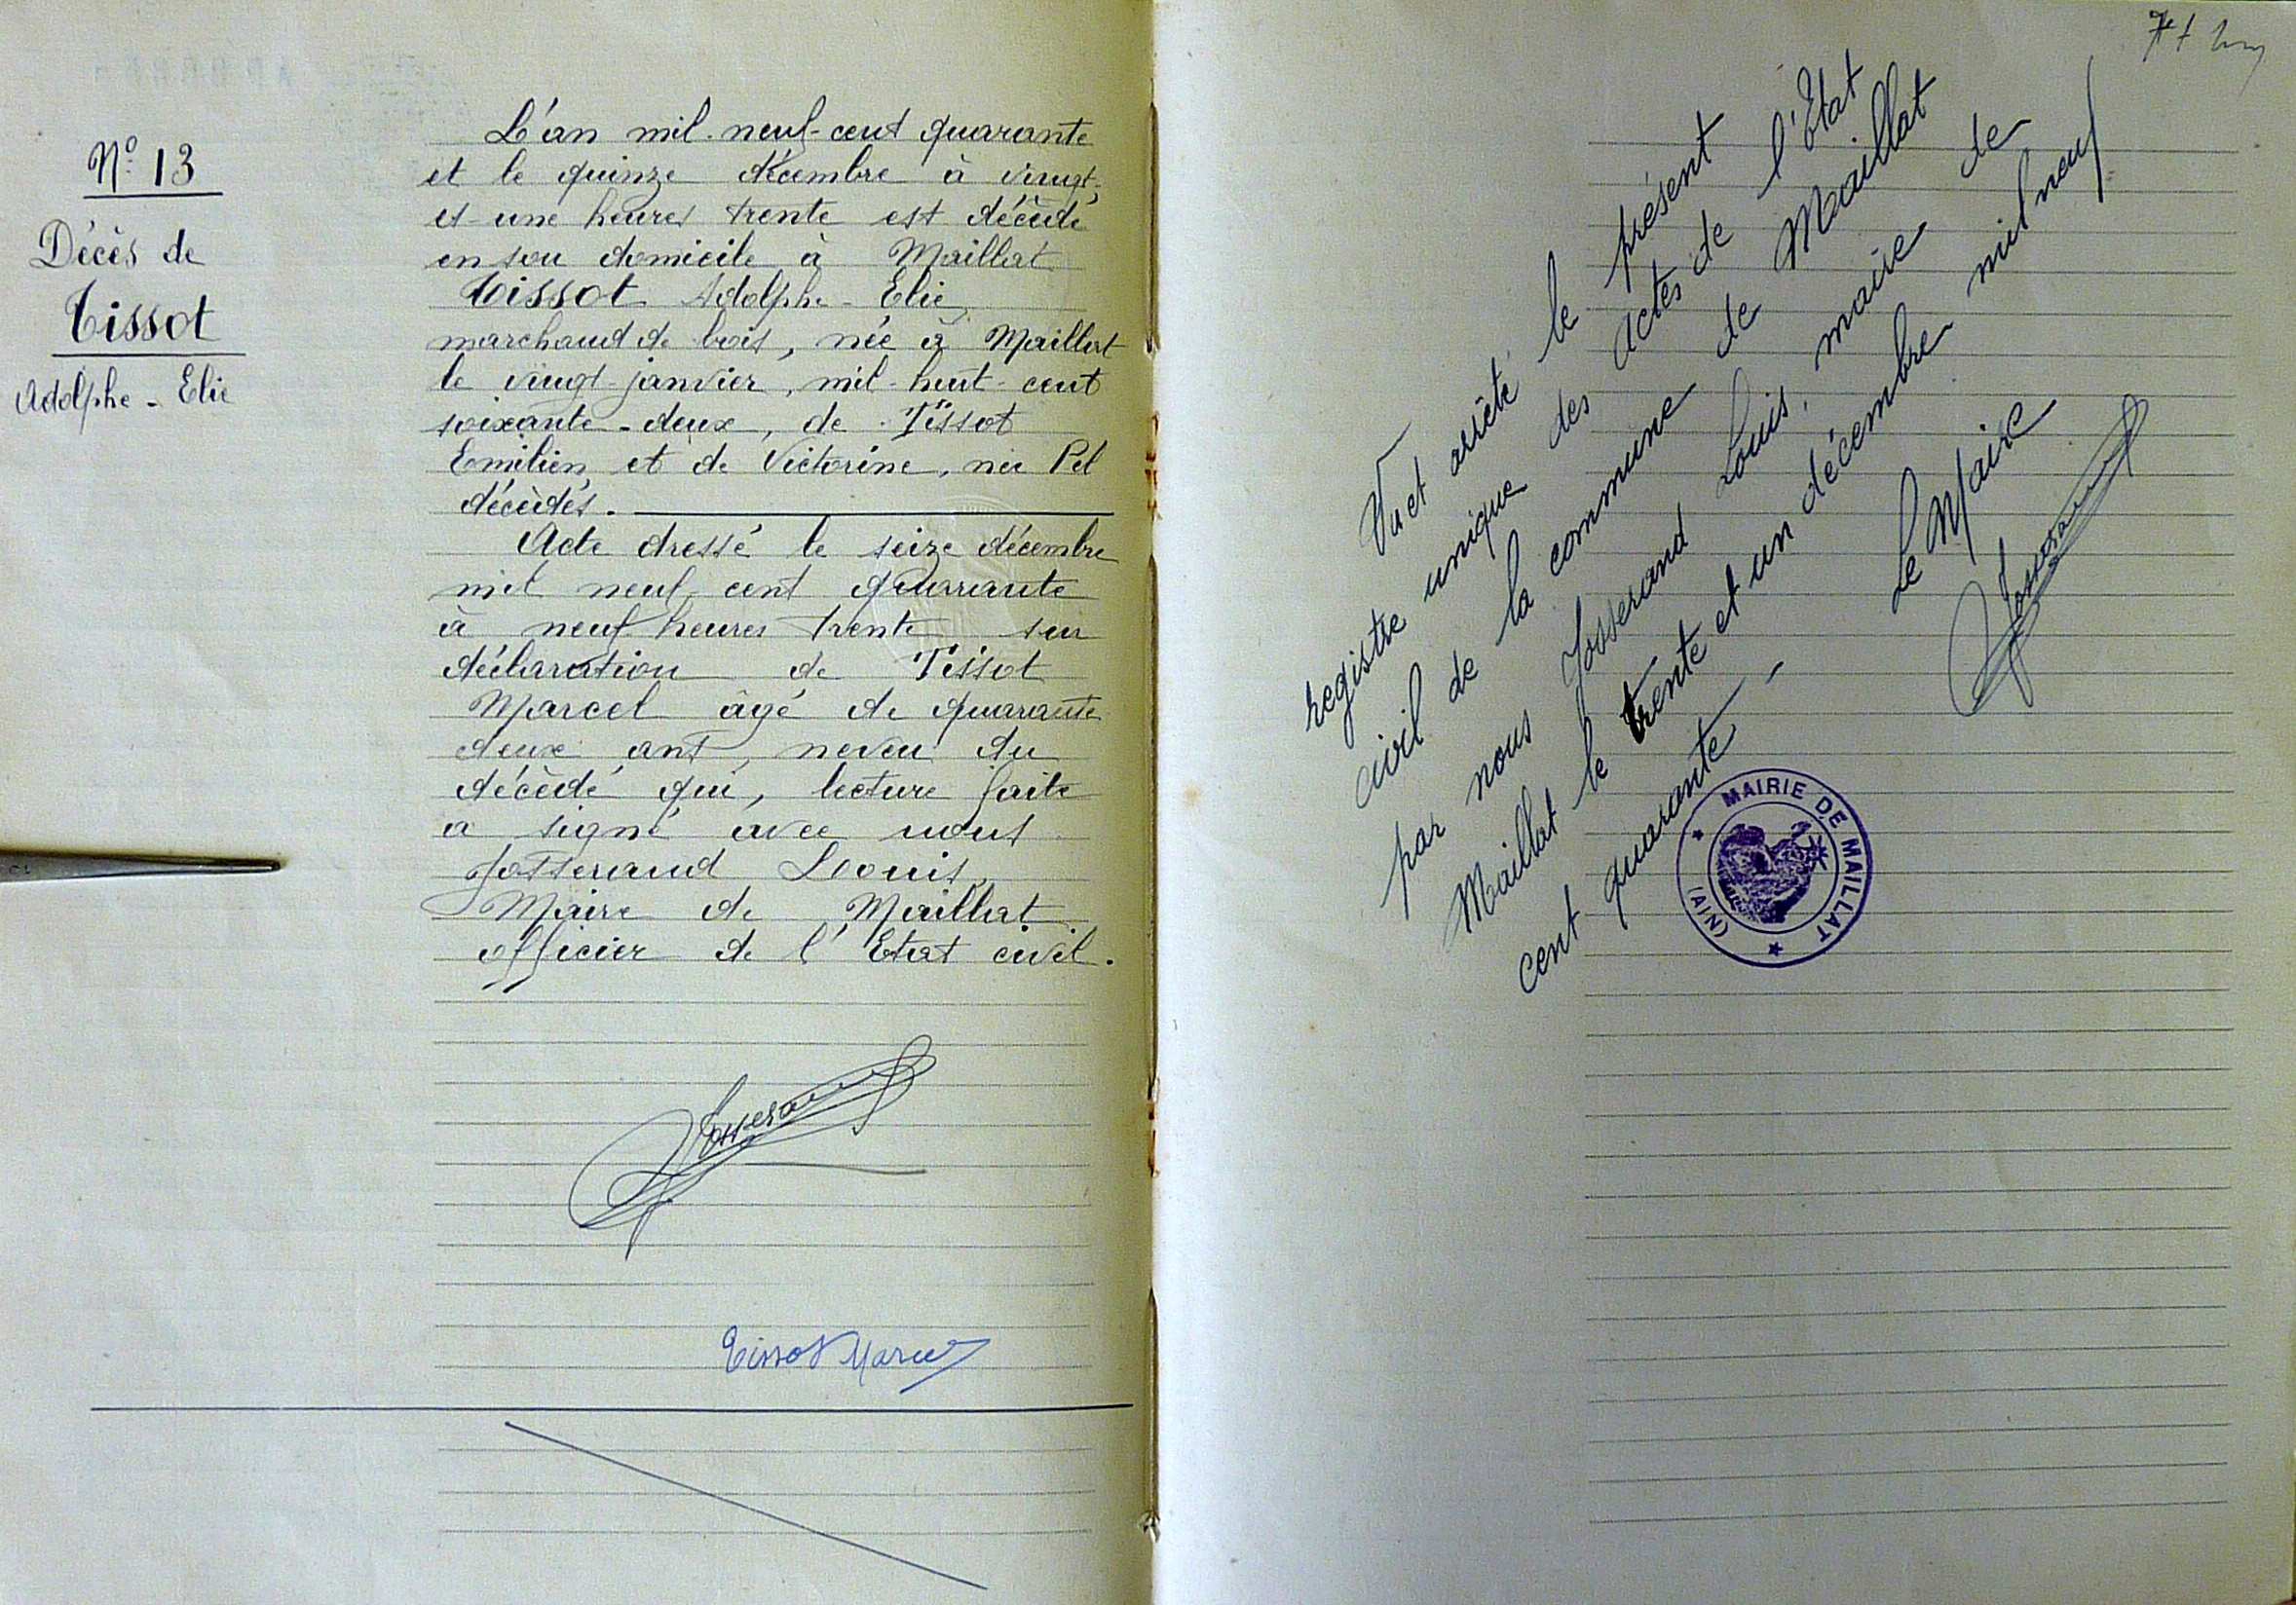 N° 13
Décès de
Tissot
Adolphe - Elie
L'an mil-neuf-cent quarante
et le quinze décembre à vingt-
et-une heures trente est décédé
en son domicile à Maillat
Tissot Adolphe - Elie,
marchand de bois, née à Maillat
le vingt-janvier, mil-huit-cent
soixante-deux, de Tissot
Emilien et de Victorine, née Pel
décèdés.
Acte dressé le seize décembre
mil neuf cent quarante
à neuf heures trente sur
déclaration de Tissot
Marcel âgé de quarante
deux ans, neveu du
décédé qui, lecture faite
a signé avec nous
Josserand Louis,
Maire de Maillat
officier de l'Etat civil.
Josserand
Tissot Marcel
Vu et arrêté le présent
registre unique des actes de l'Etat
civil de la commune de Maillat
par nous Josserand Louis, maire de
Maillat le trente et un décembre mil neuf
cent quarante -
Le Maire
Josserand
MAIRIE DE MAILLAT
(AIN)